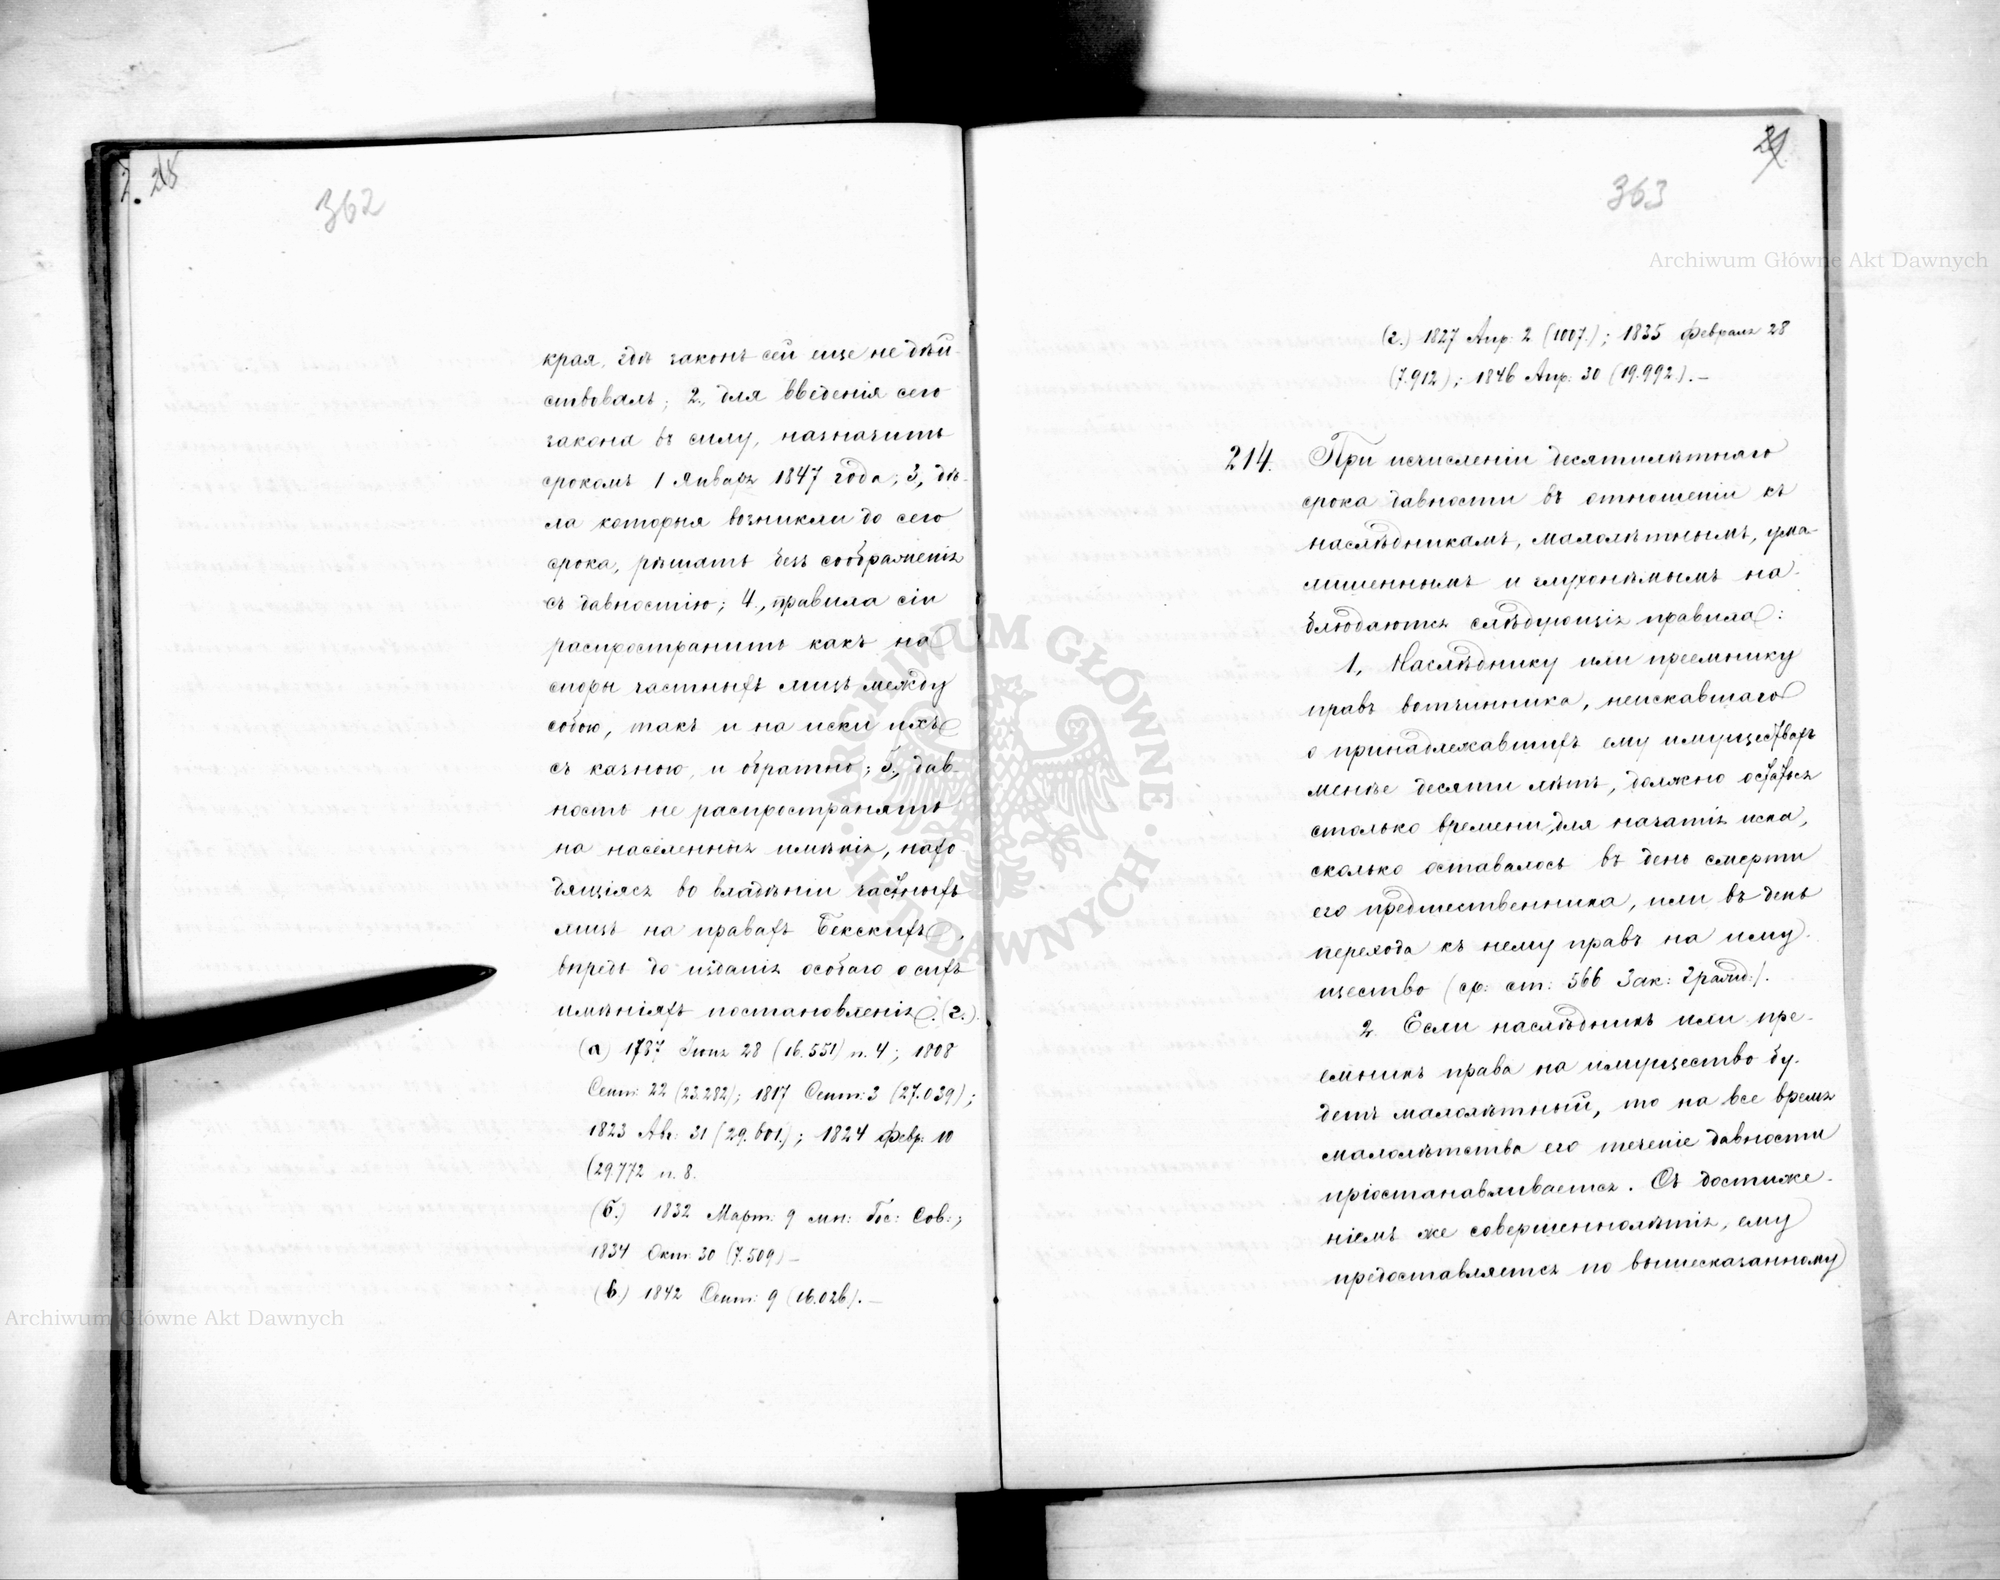 362
края, гдѣ законъ сей еще не дѣй-
ствовалъ; 2., для введенія сего
закона въ силу, назначить
срокомъ 1 Января 1847 года; 3., дѣ-
ла которыя возникли до сего
срока, рѣшать безъ соображенія
съ давностію; 4., правила сіи
распространить какъ на
споры частныхъ лицъ между
собою, такъ и на иски ихъ
съ казною, и обратно; 5., дав-
ность не распространять
на населенныя имѣнія, нахо-
дящіяся во владѣніи частныхъ
лицъ на правахъ Бекскихъ,
впредь до изданія особаго о сихъ
имѣніяхъ постановленія. (г.)
(а) 1787 Іюня 28 (16.551) п. 4; 1808
Сент: 22 (23.282); 1817 Сент: 3 (27.039);
1823 Авг: 31 (29.601.); 1824 Февр: 10
(29.772 п. 8.
(б.) 1832 Март: 9 мн: Гос: Сов:;
1834 Окт: 30 (7.509) —
(в.) 1842 Сент: 9 (16.026). —
363
(г.) 1827 Апр: 2 (1007.); 1835 Февраля 28
(7.912); 1846 Апр: 30 (19.992). —
214. При исчисленіи десятилѣтняго
срока давности въ отношеніи къ
наслѣдникамъ, малолѣтнымъ, ума-
лишеннымъ и глухонѣмымъ на-
блюдаются слѣдующія правила:
1, Наслѣднику или преемнику
правъ вотчинника, неискавшаго
о принадлежавшихъ ему имуществахъ
менѣе десяти лѣтъ, должно остаться
столько времени, для начатія иска,
сколько оставалось въ день смерти
его предмественника, или въ день
перехода къ нему правъ на иму-
щество (ср: ст: 566 Зак: Гражд:).
2. Если наслѣдникъ или пре-
емникъ права на имущество бу-
детъ малолѣтный, то на все время
малолѣтства его теченіе давности
пріостанавливается. Съ достиже-
ніемъ же совершеннолѣтія, ему
предоставляется по вышесказанному
Archiwum Główne Akt Dawnych
Archiwum Główne Akt Dawnych
ARCHIWUM GŁÓWNE AKT DAWNYCH